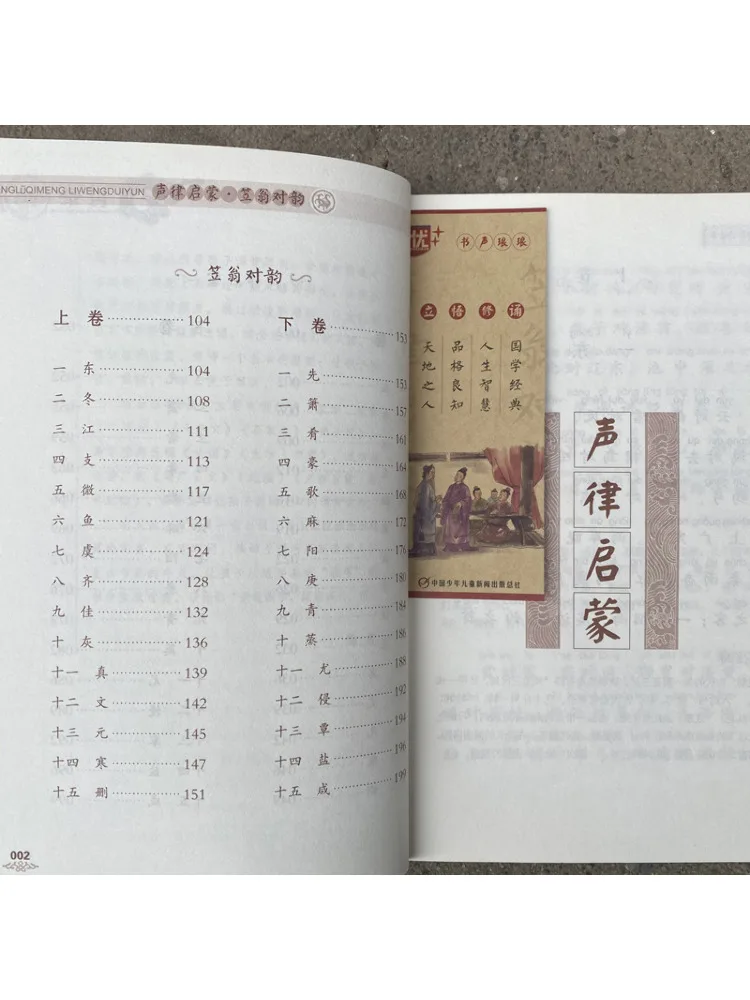 NGLÜQIMENG LIWENGDUIYUN 声律启蒙·笠翁对韵
笠翁对韵
上卷 104
一 东 104
二 冬 108
三 江 111
四 支 113
五 微 117
六 鱼 121
七 虞 124
八 齐 128
九 佳 132
十 灰 136
十一 真 139
十二 文 142
十三 元 145
十四 寒 147
十五 删 151
下卷 153
一 先 153
二 萧 157
三 肴 161
四 豪 164
五 歌 168
六 麻 172
七 阳 176
八 庚 180
九 青 184
十 蒸 186
十一 尤 188
十二 侵 192
十三 覃 194
十四 盐 196
十五 咸 199
002
优++
书声琅琅
立悟修诵
国学经典
人生智慧
品格良知
天地之人
中国少年儿童新闻出版总社
声律启蒙